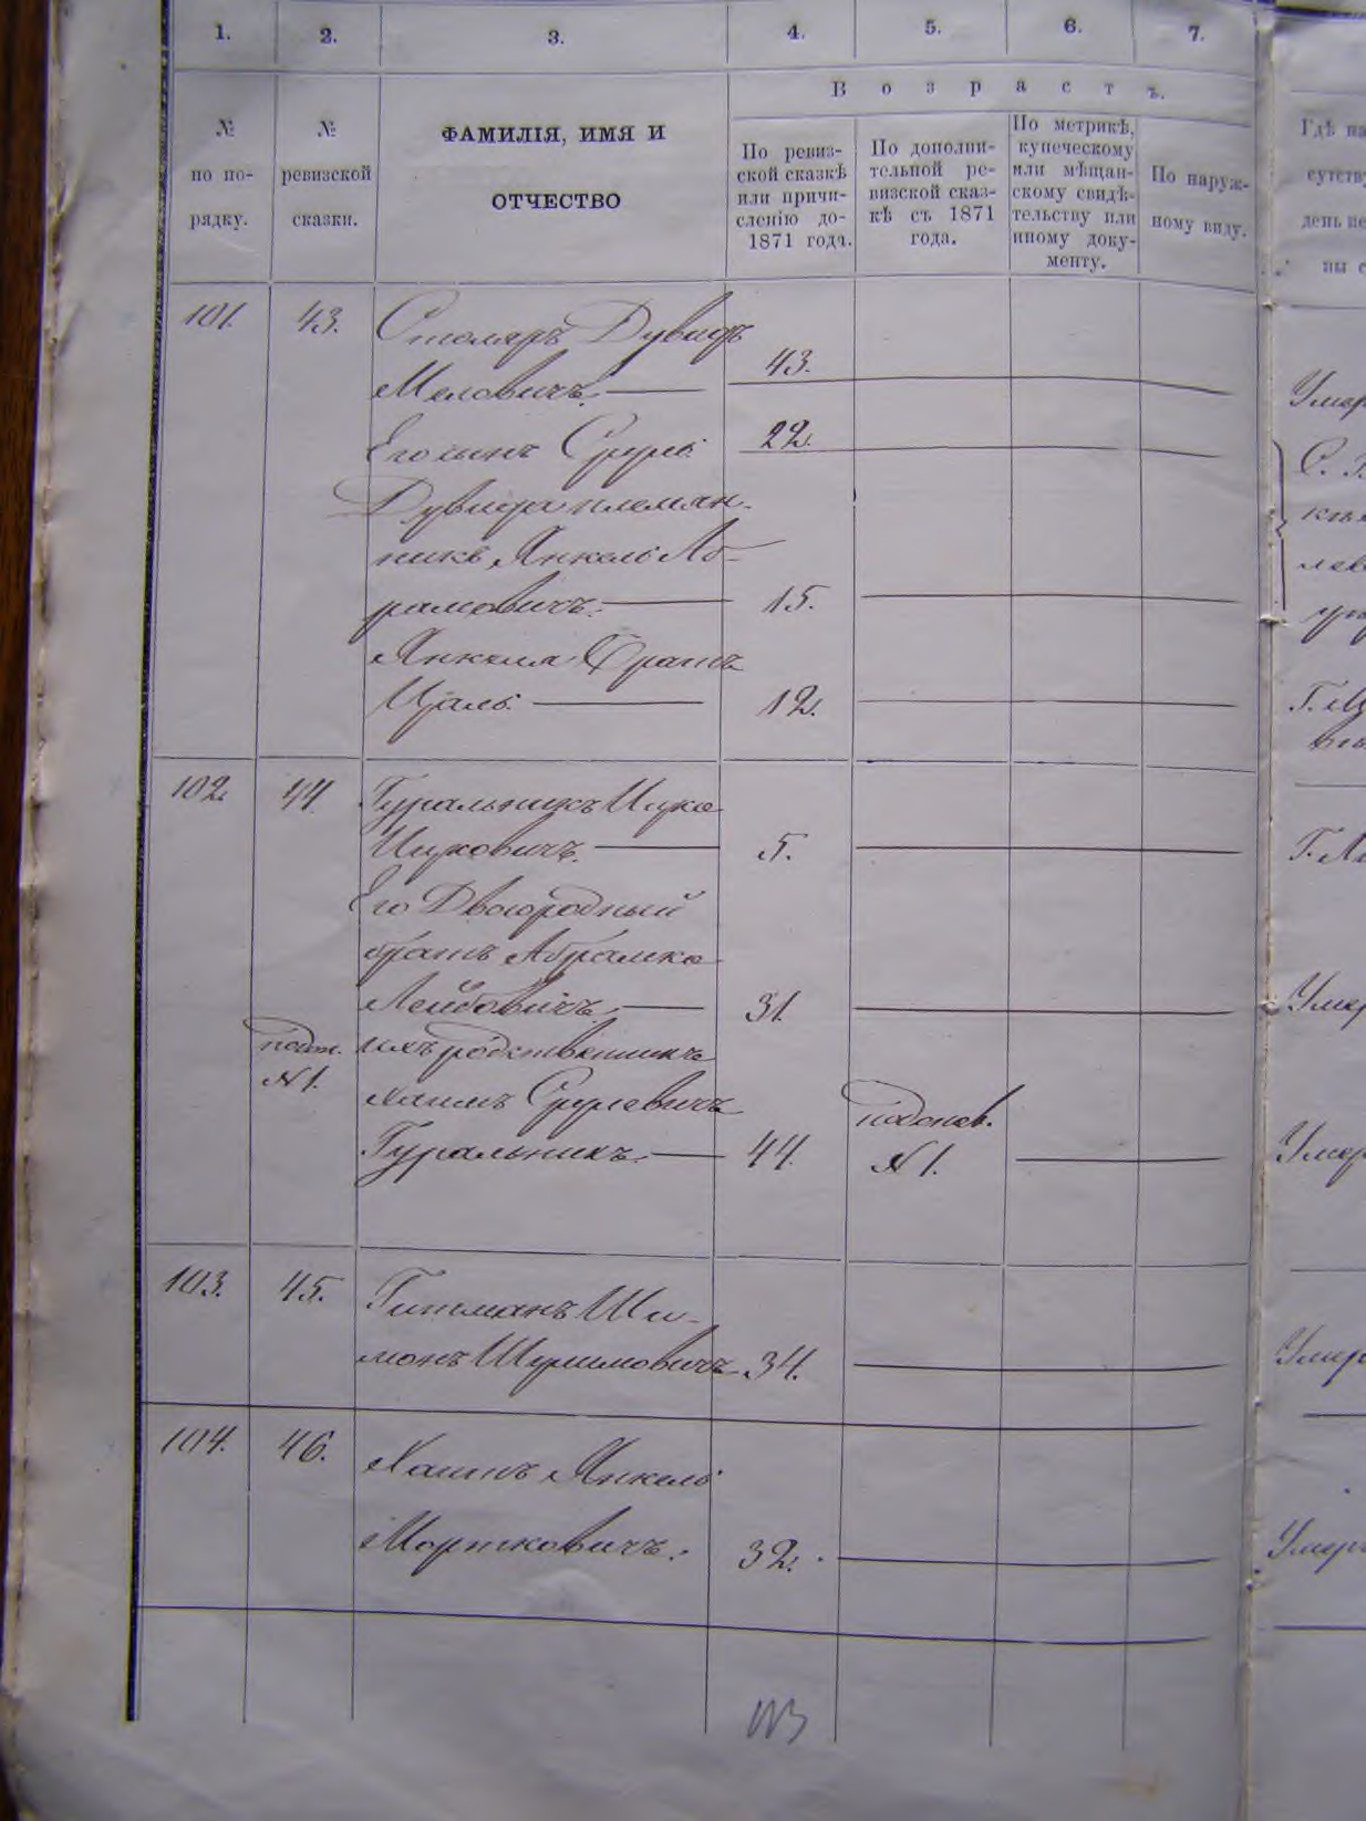 1. 2. 3. 4. 5. 6. 7.
Возрастъ.
№ по порядку.
№ ревизской сказки.
ФАМИЛІЯ, ИМЯ И
ОТЧЕСТВО
По ревиз-
ской сказкѣ
или причи-
сленію до
1871 года.
По дополни-
тельной ре-
визской сказ-
кѣ съ 1871
года.
По метрикѣ,
купеческому
или мѣщан-
скому свидѣ-
тельству или
иному доку-
менту.
По наруж-
ному виду.
101. 43. Столяръ Дувидъ
Меловичъ. 43.
Его сынъ Сруль 22.
Дувида племян-
никъ Янкель Аб-
рамовичъ. 15.
Янкеля братъ
Цаль. 12.
102. 44. Гуральникъ Ицко
Ицковичъ. 5.
Его Двоюродный
братъ Абрамко
Лейбовичъ 31.
№ 1. ихъ родственникъ
Хаимъ Срулевичъ
Гуральникъ. 44. № 1.
103. 45. Гитманъ Ши-
монъ Шулимовичъ 34.
104. 46. Янкель
Мортковичъ. 32.